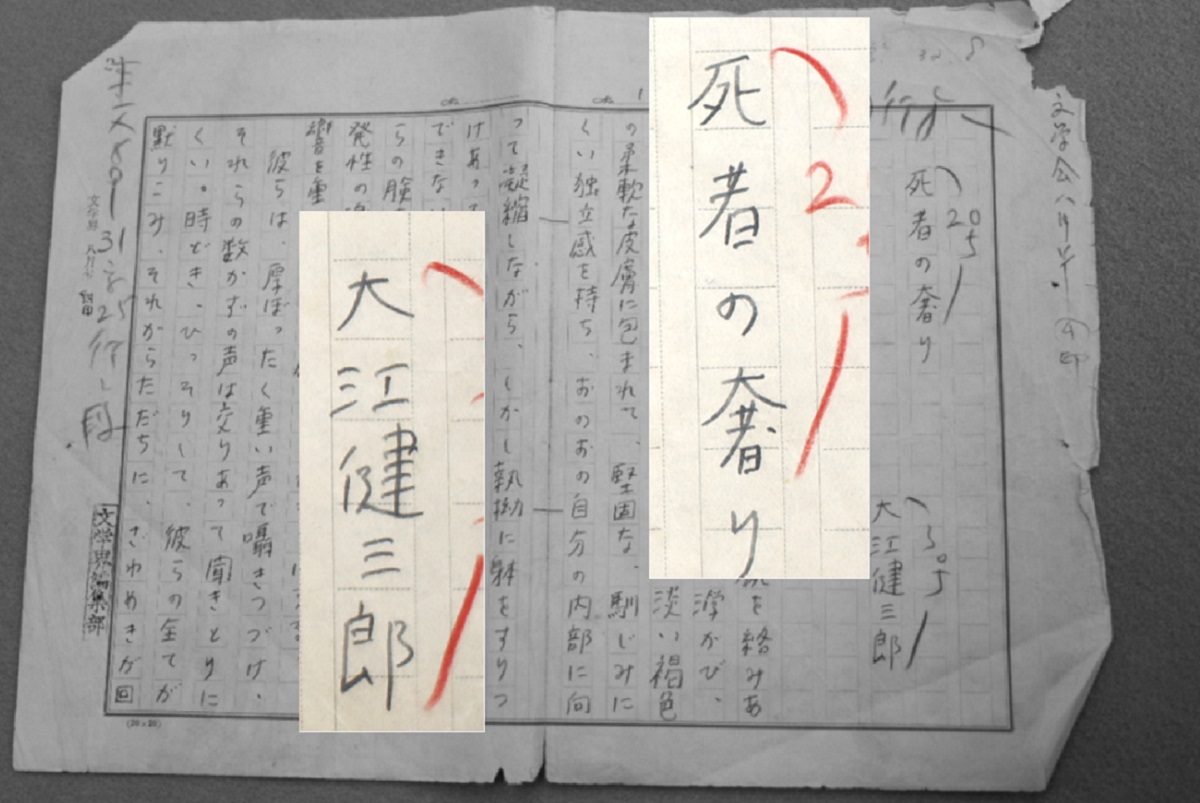 文学会八月号
死者の奢り
大江健三郎
死者の奢り
を絡みあ
淡い褐色
の柔軟な皮膚に包まれて、堅固な、馴じみに
くい独立感を持ち、おのおの自分の内部に向
って凝縮しながら、しかし執拗に躰をすりつ
けあっ
できな
大江健三郎
らの瞼
発性の
響を重
彼らは、厚ぼったく重い声で囁きつづけ、
それらの数かずの声は交りあって聞きとりに
くい。時どき、ひっそりして、彼らの全てが
黙りこみ、それからただちに、ざわめきが回
文学界編集部
(20×20)